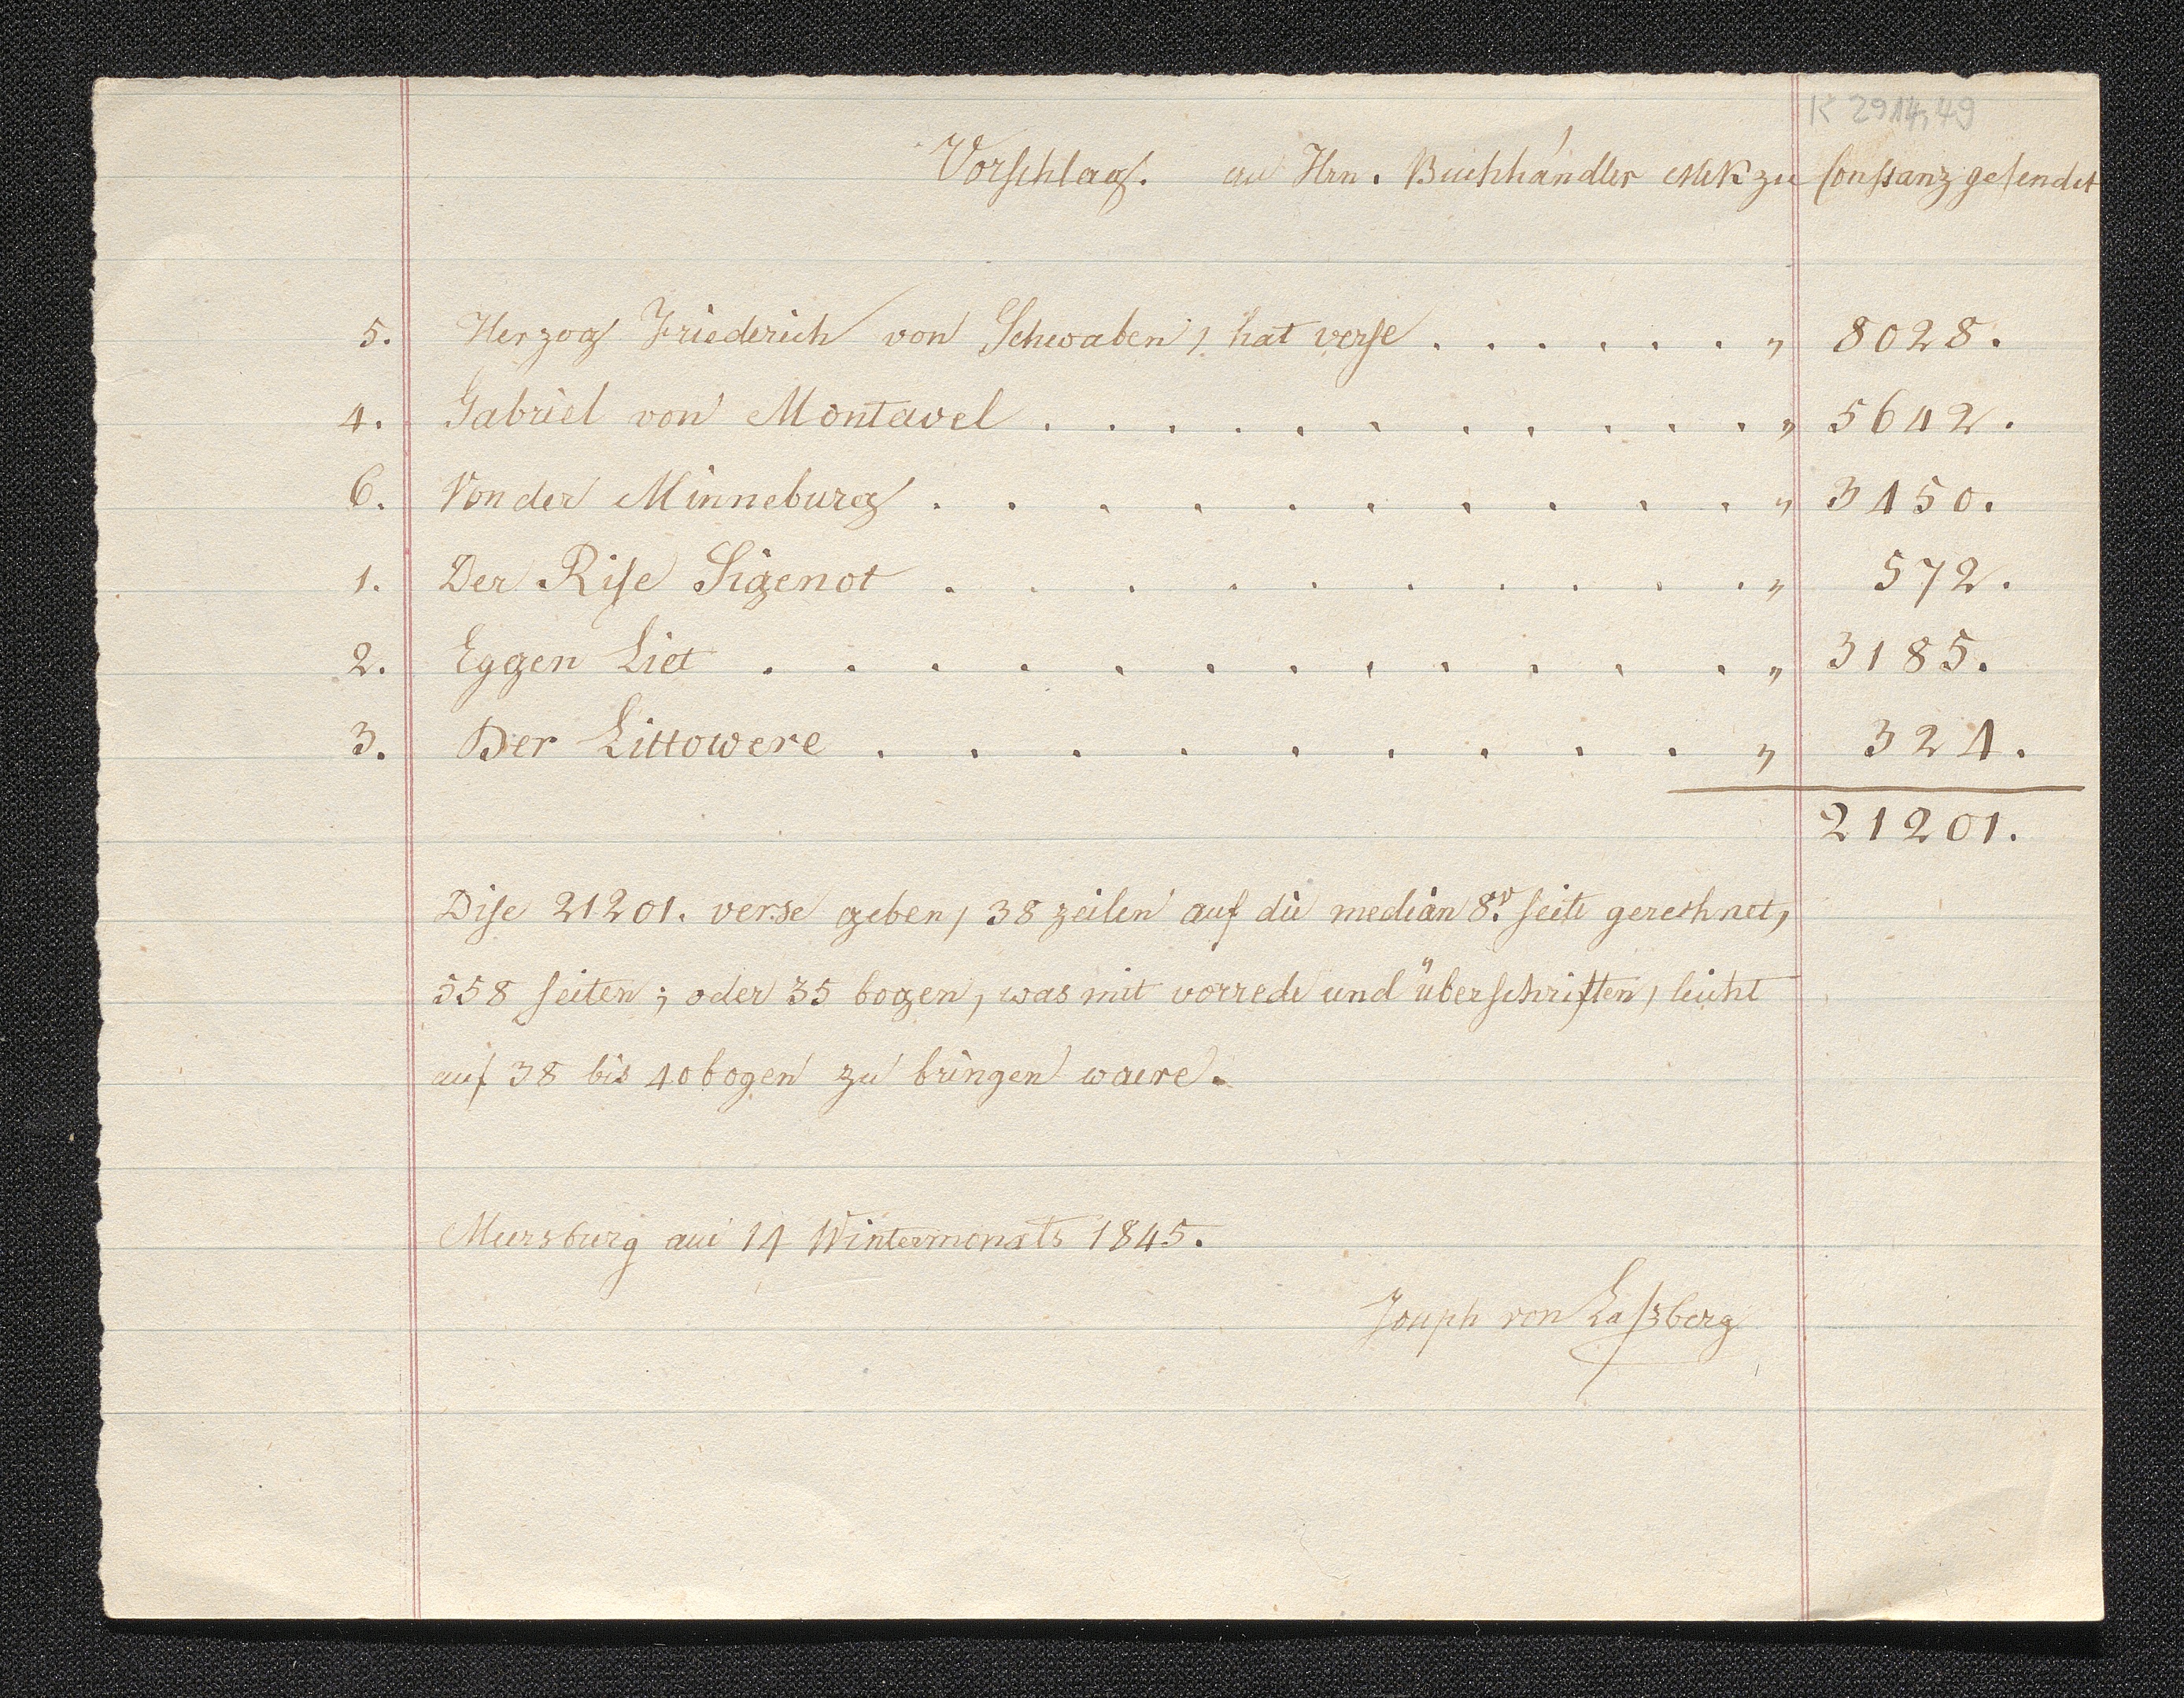 K 2914,49
Vorschlag. an Hrn. Buchhändler Mek zu Constanz gesendet
5. Herzog Friederich von Schwaben, hat verse . . . . . . „ 8028.
4. Gabriel von Montavel . . . . . . . . . . . „ 5642.
6. Von der Minneburg . . . . . . . . . . „ 3450.
1. Der Rise Sigenot . . . . . . . . . . „ 572.
2. Eggen Liet . . . . . . . . . . . . „ 3185.
3. Der Littowere . . . . . . . . . „ 324.
21201.
Dise 21201. verse geben, 38 zeilen auf die median 8.º seite gerechnet,
558 seiten; oder 35 bogen, was mit vorrede und überschriften, leicht
auf 38 bis 40 bogen zu bringen waere.
Meersburg am 14 Wintermonats 1845.
Joseph von Laßberg